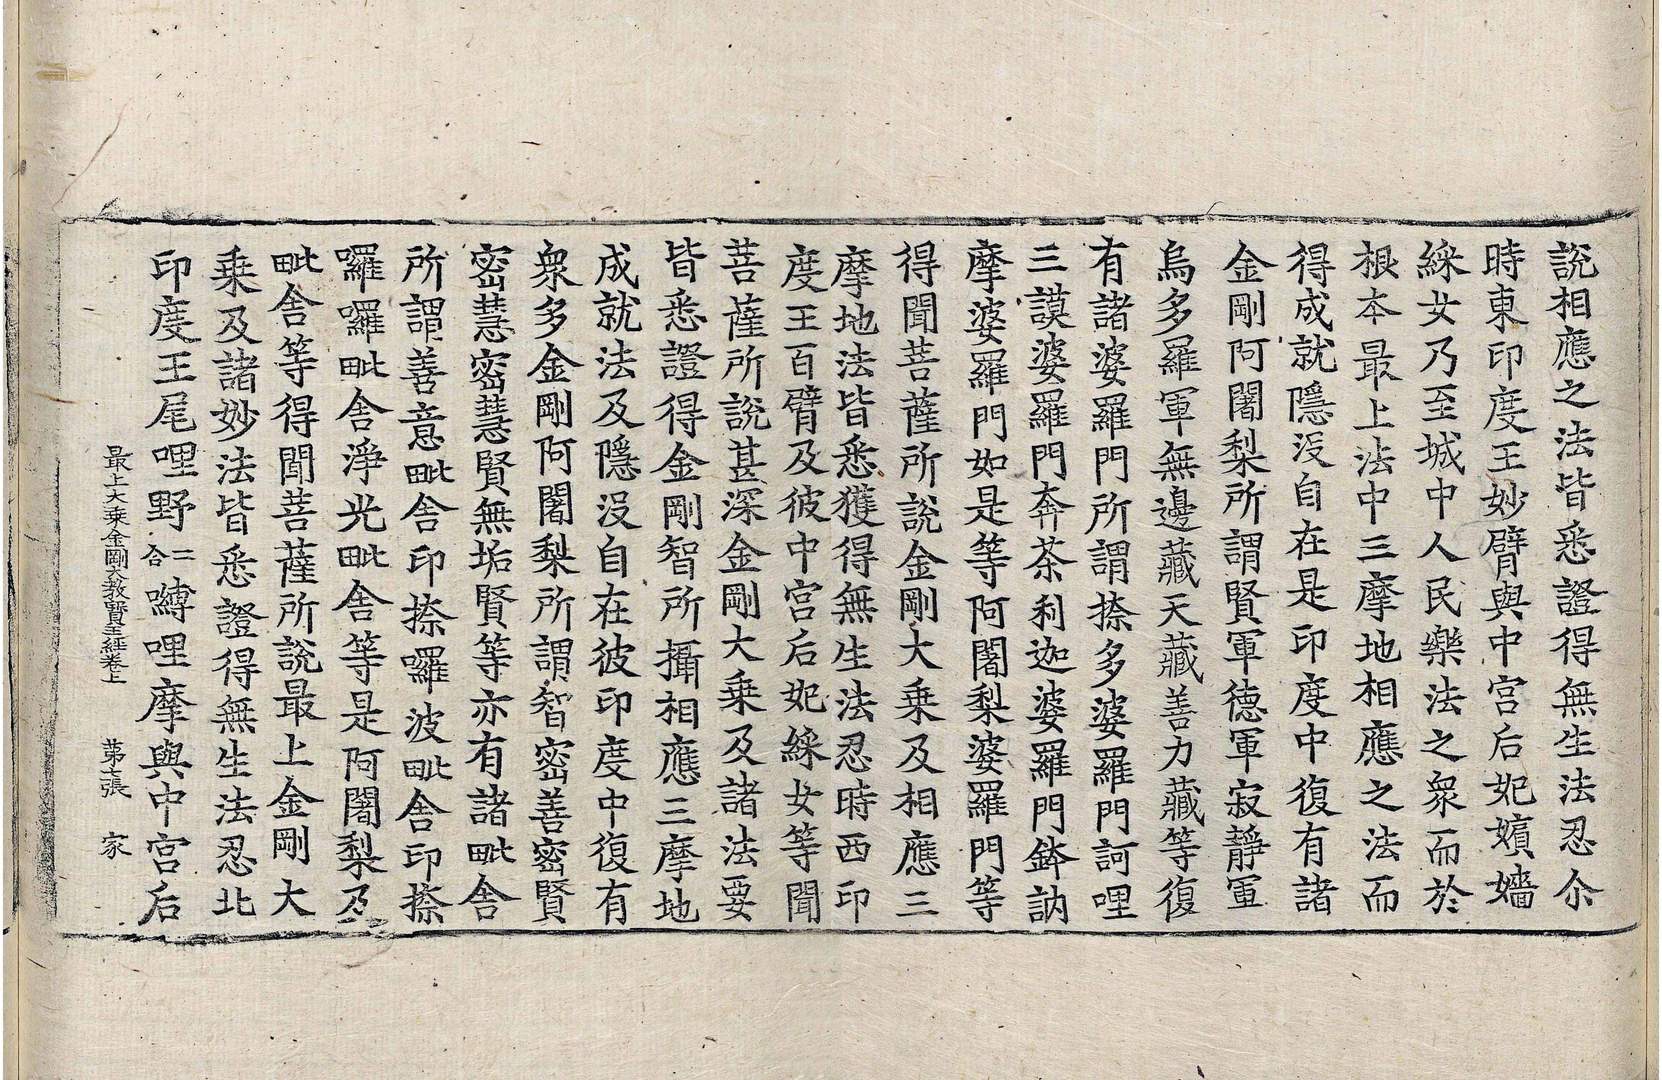 說相應之法皆悉證得無生法忍尒
時東印度王妙臂與中宮后妃嬪嬙
綵女乃至城中人民樂法之衆而於
根本最上法中三摩地相應之法而
得成就隱沒自在是印度中復有諸
金剛阿闍梨所謂賢軍德軍寂靜軍
烏多羅軍無邊藏天藏善力藏等復
有諸婆羅門所謂捺多婆羅門訶哩
三謨婆羅門奔茶利迦婆羅門鉢訥
摩婆羅門如是等阿闍梨婆羅門等
得聞菩薩所說金剛大乘及相應三
摩地法皆悉獲得無生法忍時西印
度王百臂及彼中宮后妃綵女等聞
菩薩所說甚深金剛大乘及諸法要
皆悉證得金剛智所攝相應三摩地
成就法及隱沒自在彼印度中復有
衆多金剛阿闍梨所謂智密善密賢
密慧密慧賢無垢賢等亦有諸毗舍
所謂善意毗舍印捺囉波毗舍印捺
囉囉毗舍淨光毗舍等是阿闍梨及
毗舍等得聞菩薩所說最上金剛大
乘及諸妙法皆悉證得無生法忍北
印度王尾哩野二合嚩哩摩與中宮后
最上大乘金剛大教寶王經卷上 第七張 家